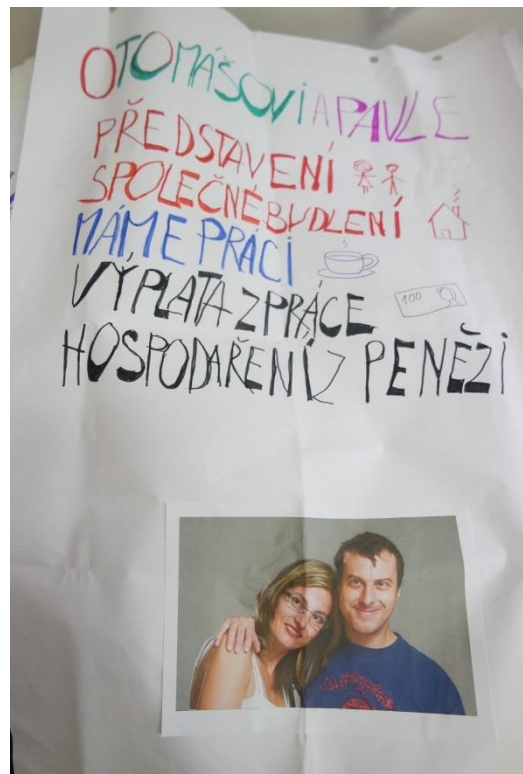 O TOMÁŠOVI A PAVLE
PŘEDSTAVENÍ
SPOLEČNÉ BUDLENÍ
MÁME PRÁCI
VÝPLATA Z PRÁCE
100
HOSPODAŘENÍ Z PENĚZI